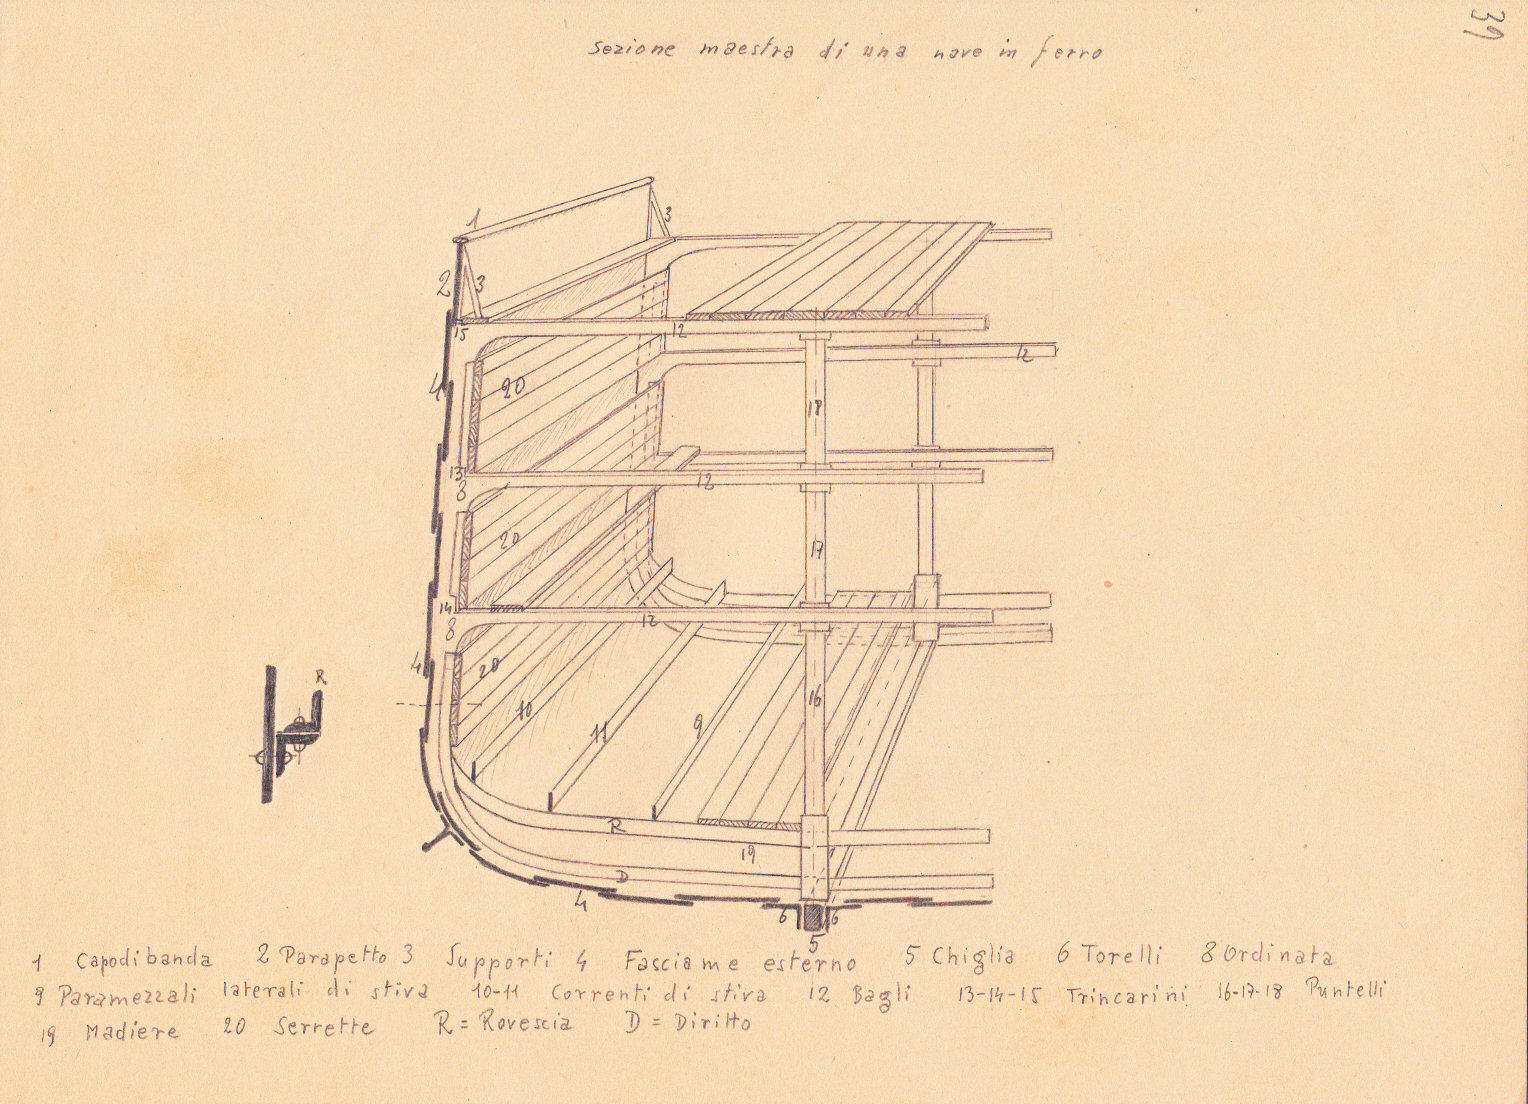 39
Sezione maestra di una nave in ferro
1
3
2
3
15
12
12
4
20
18
13
8
12
20
17
14
8
12
4
20
R
10
11
9
16
R
19
7
D
4
6
6
5
1 Capodibanda 2 Parapetto 3 Supporti 4 Fasciame esterno 5 Chiglia 6 Torelli 8 Ordinata
9 Paramezzali laterali di stiva 10-11 Correnti di stiva 12 Bagli 13-14-15 Trincarini 16-17-18 Puntelli
19 Madiere 20 Serrette R = Rovescia D = Diritto